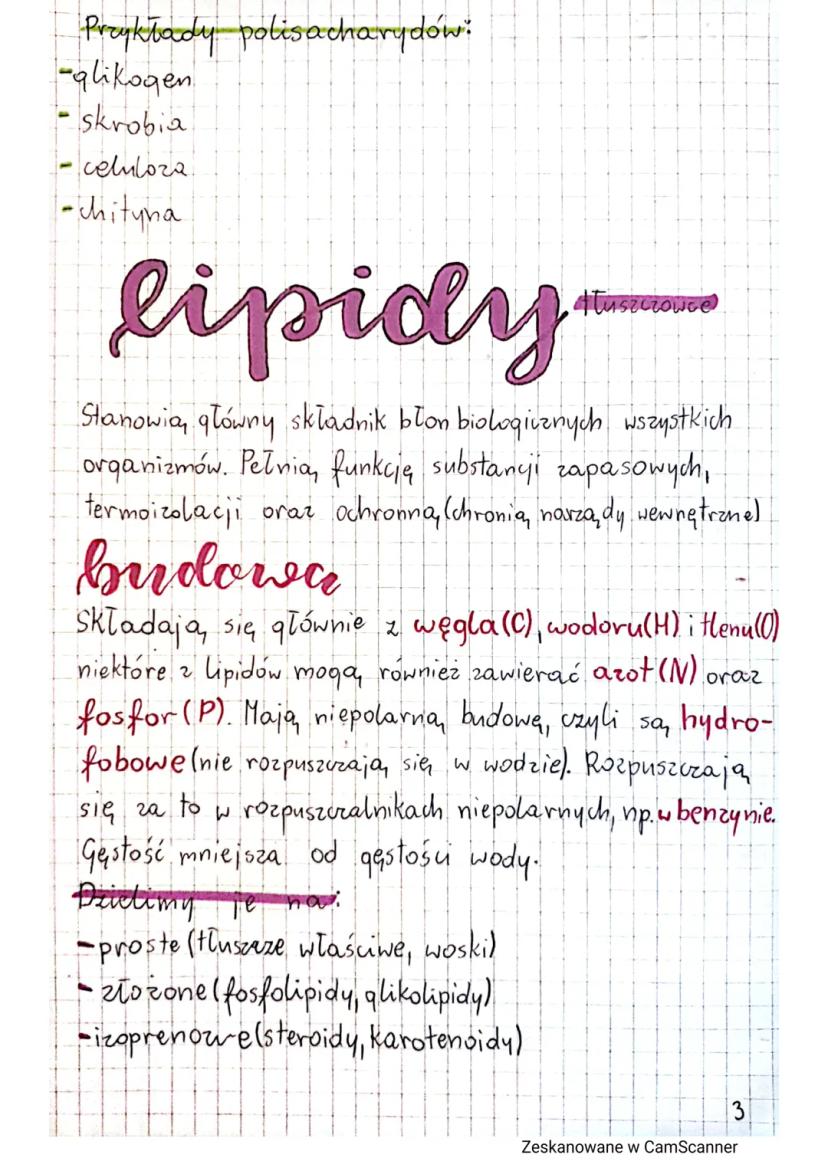 Przykłady polisacharydów:
-glikogen
- skrobia
- celuloza
- chityna
lipidy tłuszczowce
Stanowią główny składnik błon biologicznych wszystkich
organizmów. Pełnią funkcję substancji zapasowych,
termoizolacji oraz ochronną (chronią narządy wewnętrzne)
budowa
Składają się głównie z węgla(C), wodoru(H) i tlenu(O)
niektóre z lipidów mogą również zawierać azot (N) oraz
fosfor (P). Mają niepolarną budowę, czyli są hydro-
fobowe (nie rozpuszczają się w wodzie). Rozpuszczają
się za to w rozpuszczalnikach niepolarnych, np. w benzynie.
Gęstość mniejsza od gęstości wody.
Dzielimy je na:
-proste (tłuszcze właściwe, woski)
- złożone (fosfolipidy, glikolipidy)
-izoprenowe (steroidy, karotenoidy)
3
Zeskanowane w CamScanner